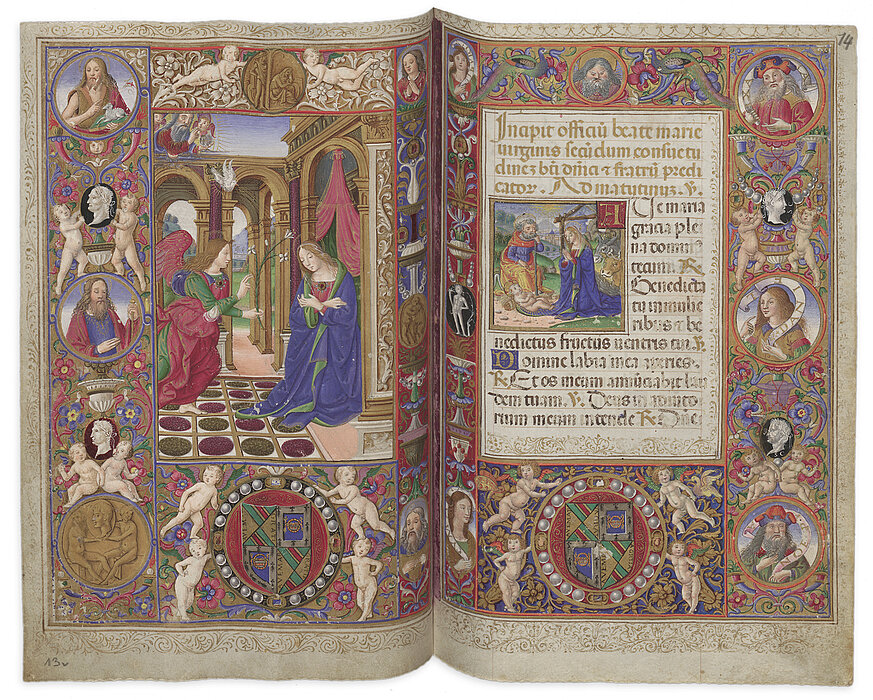 14
Incipit officiū beate marie
virginis secūdum consuetu
dinez bti dñici & fratrū predi
cator. Ad matutinuz. V.
AVe maria
gracia ple
na domin⁹
tecum. R.
Benedicta
tu in mulie
ribus & be
nedictus fructus uentris tui. V.
Domine labia mea aperies.
R. Et os meum annūciabit lau
dem tuam. V. Deus in adiuto
rium meum intende R. Dñe
13v